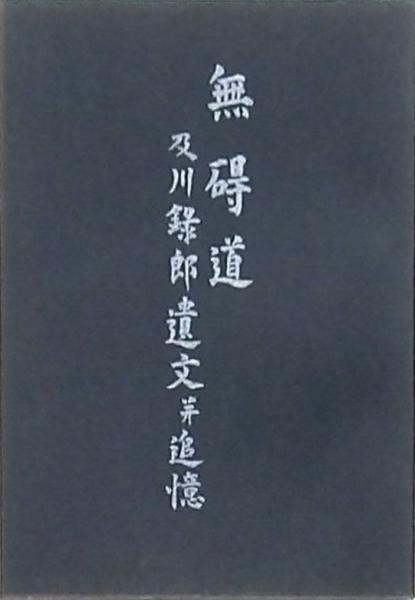 無碍道
及川錄郎遺文并追憶